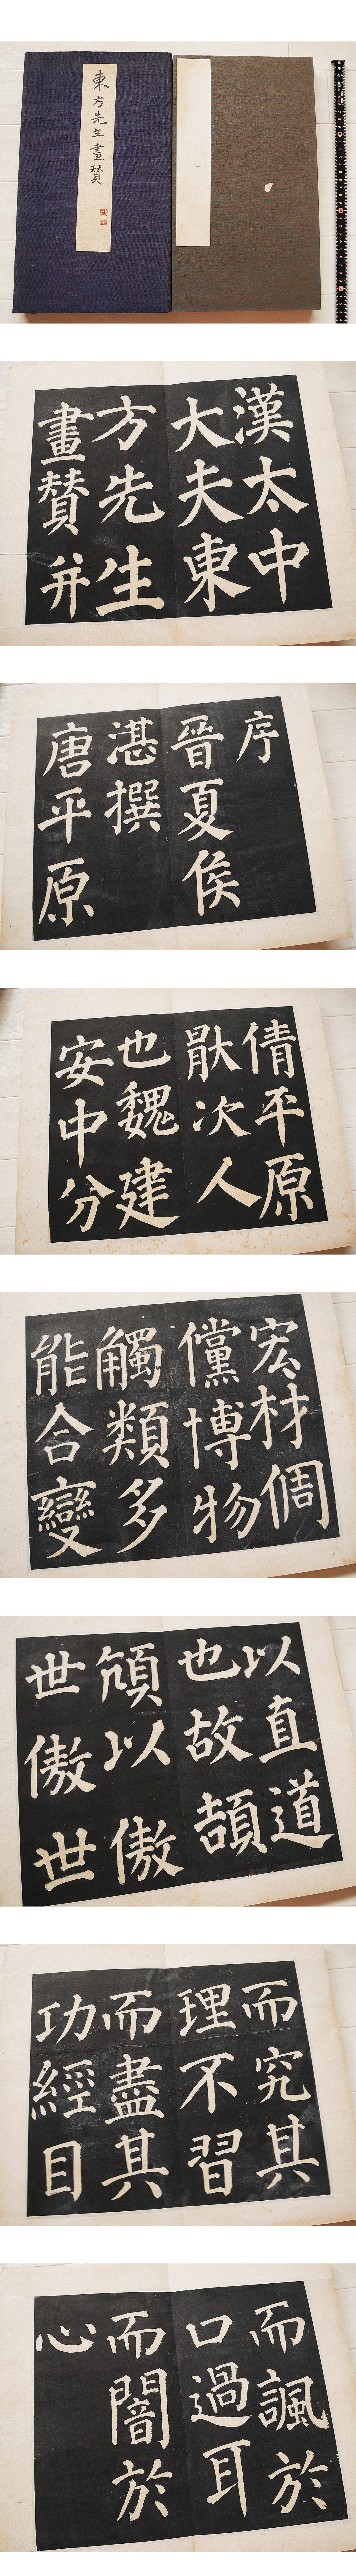 東方先生畫賛
漢太中
大夫東
方先生
畫賛并
序
晉夏侯
湛撰
唐平原
倩平原
猒次人
也魏建
安中分
宏材倜
儻博物
觸類多
能合變
以直道
也故頡
頏以傲
世傲世
而究其
理不習
而盡其
功經目
而諷於
口過耳
而闇於
心